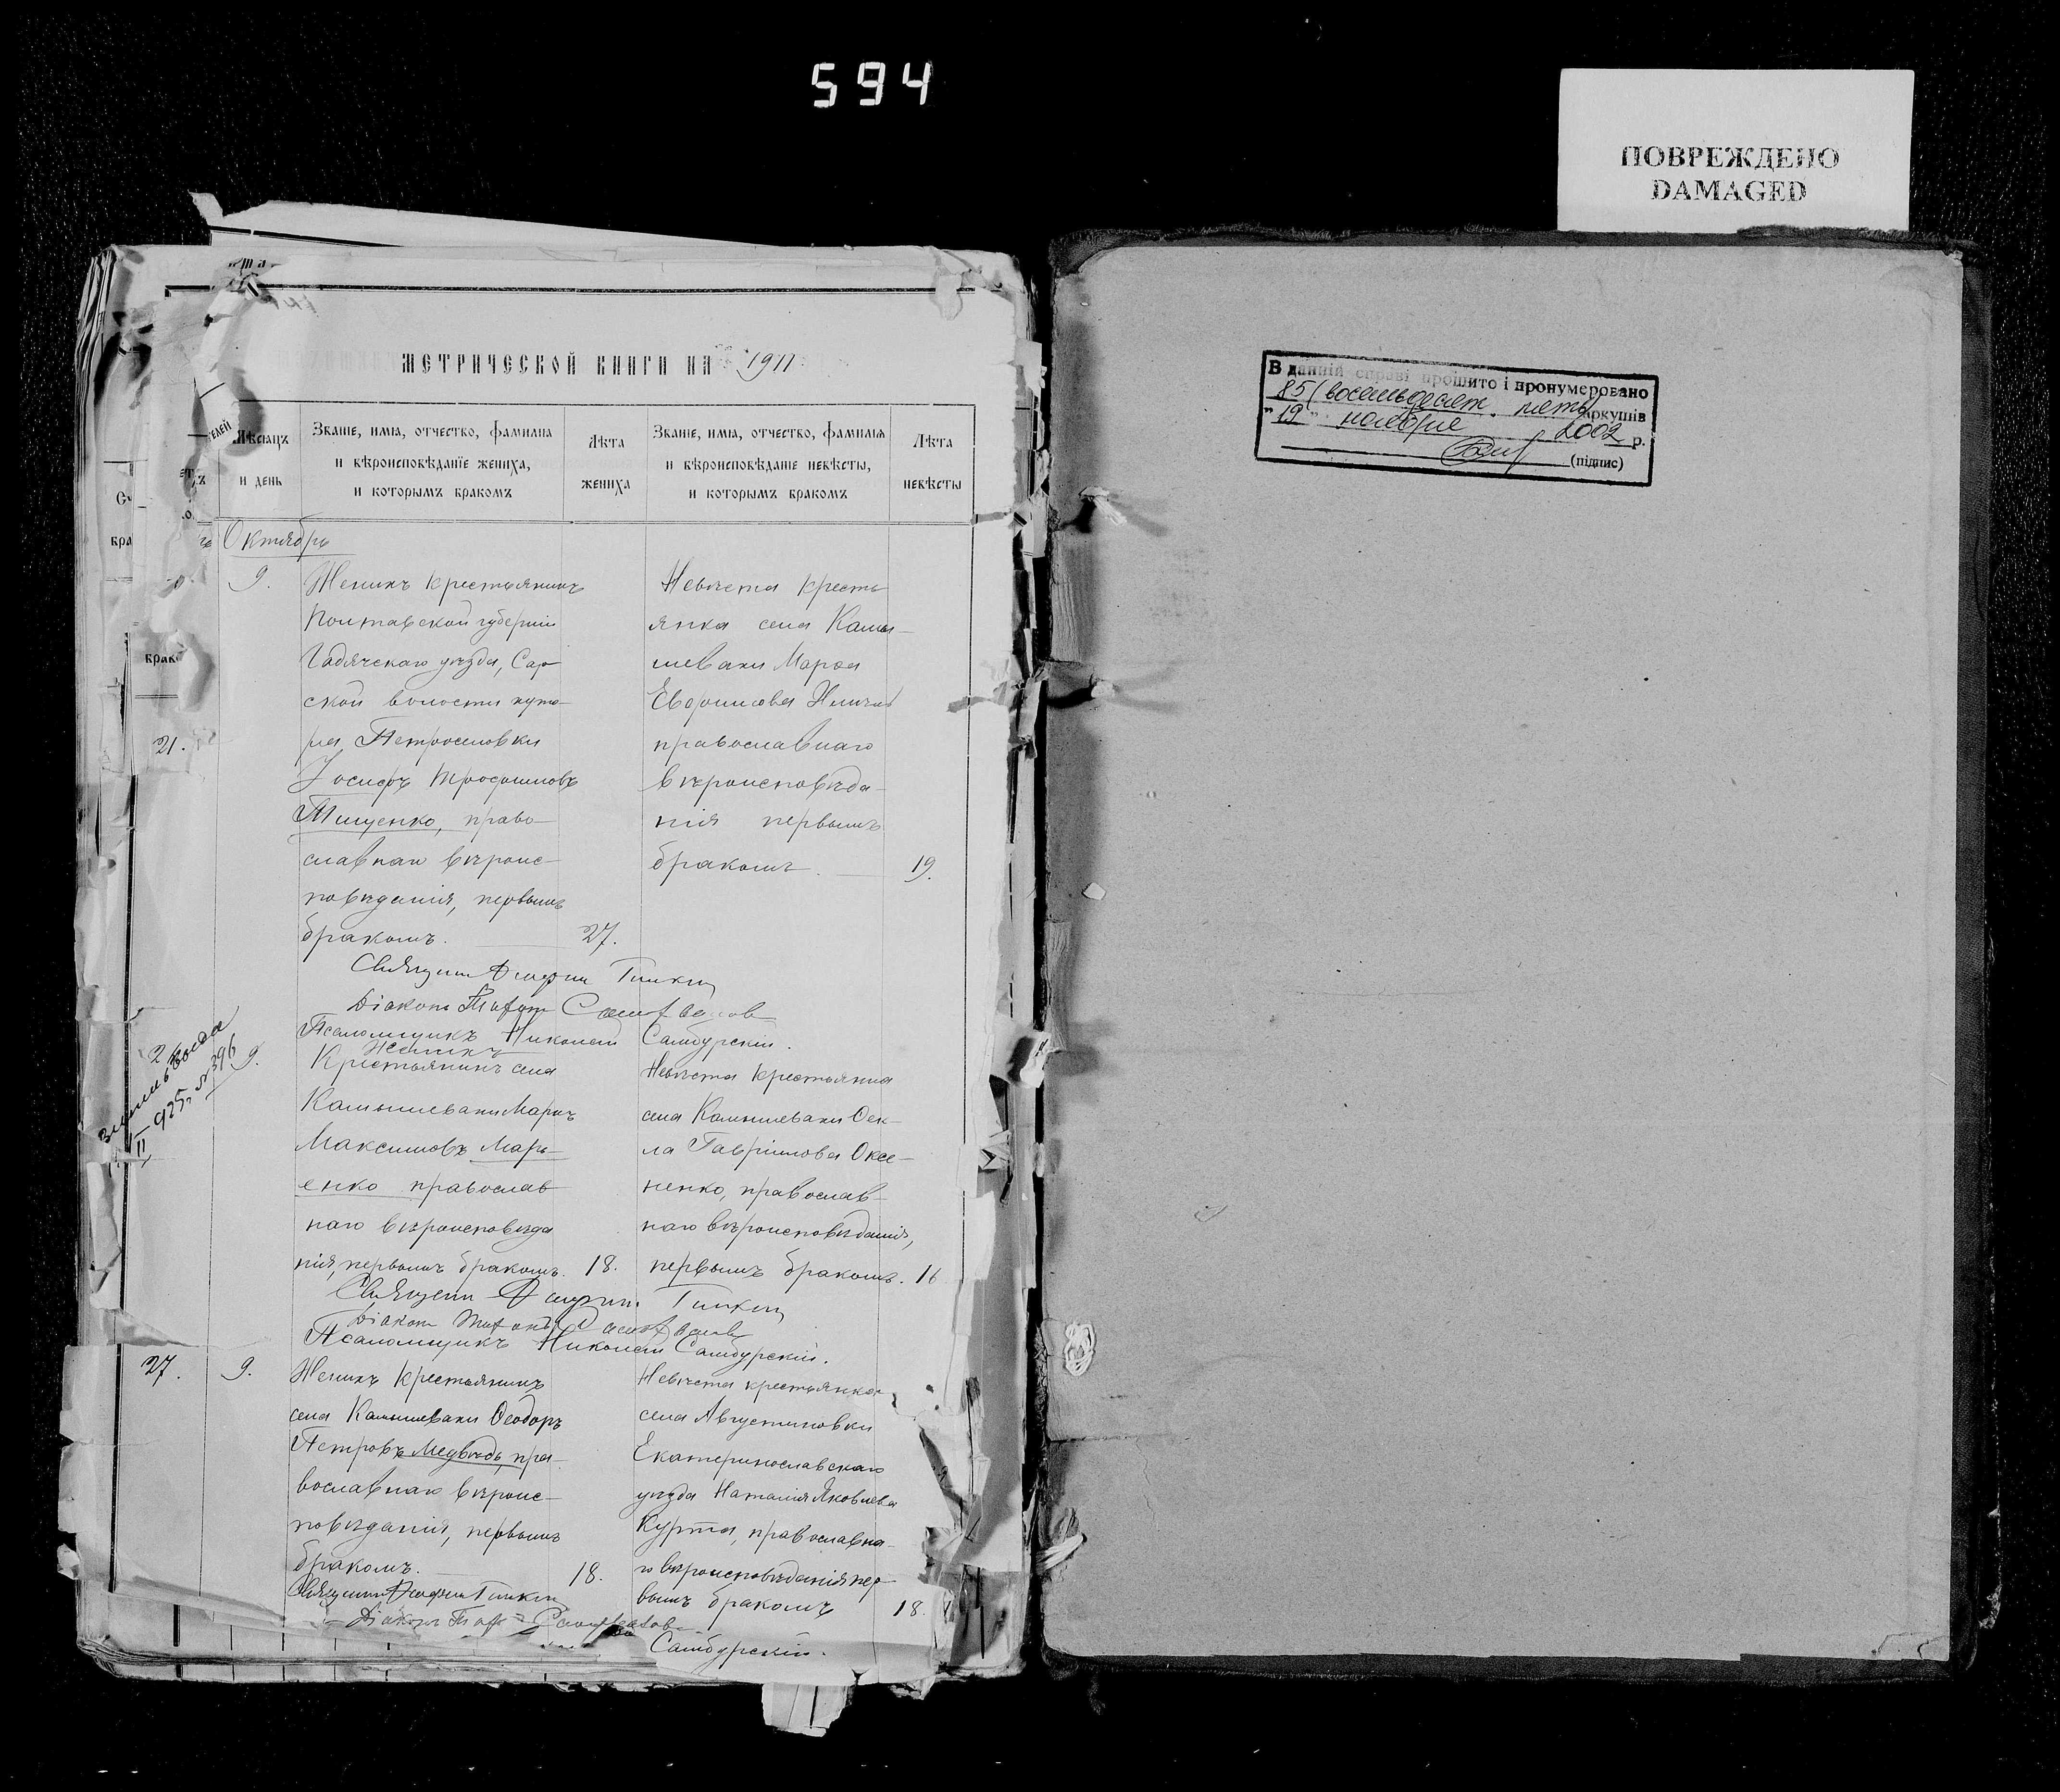 594
ПОВРЕЖДЕНО
DAMAGED
МЕТРИЧЕСКОЙ КНИГИ НА 1911
Мѣсяцъ и день
Званіе, имя, отчество, фамилія и вѣроисповѣданіе жениха, и которымъ бракомъ
Лѣта жениха
Званіе, имя, отчество, фамилія и вѣроисповѣданіе невѣсты, и которымъ бракомъ
Лѣта невѣсты
Октябрь
21.
9.
Женихъ крестьянинъ
Полтавской губерніи
Гадячскаго уѣзда, Сар-
ской волости хуто-
ра Петросиловки
Іосифъ Трофимовъ
Тищенко, право-
славнаго вѣроис-
повѣданія, первымъ
бракомъ. 27.
Невѣста кресть
янка села Камы-
шевахи Марѳа
Евфимова
православнаго
вѣроисповѣда-
нія первымъ
бракомъ. 19.
Діаконъ
Псаломщикъ Николай Самбурскій.
9.
Женихъ
Крестьянинъ села
Камышевахи Маркъ
Максимовъ Марь-
енко православ
наго вѣроисповѣда
нія, первымъ бракомъ. 18.
Невѣста крестьянка
села Камышевахи Ѳек-
ла Гавріилова Оксе-
ненко, православ-
наго вѣроисповѣданія,
первымъ бракомъ. 16
Діаконъ
Псаломщикъ Николай Самбурскій.
27.
9.
Женихъ крестьянинъ
села Камышевахи Ѳеодоръ
Петровъ Медвѣдь, пра-
вославнаго вѣроис-
повѣданія, первымъ
бракомъ. 18.
Невѣста крестьянка
села Августиновки
Екатеринославскаго
уѣзда Наталія Яковлева
Курта, православна-
го вѣроисповѣданія пер-
вымъ бракомъ 18.
Діаконъ
Самбурскій.
В данній справі прошито і пронумеровано
85 (восемьдесят пять) аркушів
"19" ноября 2002 р.
(підпис)